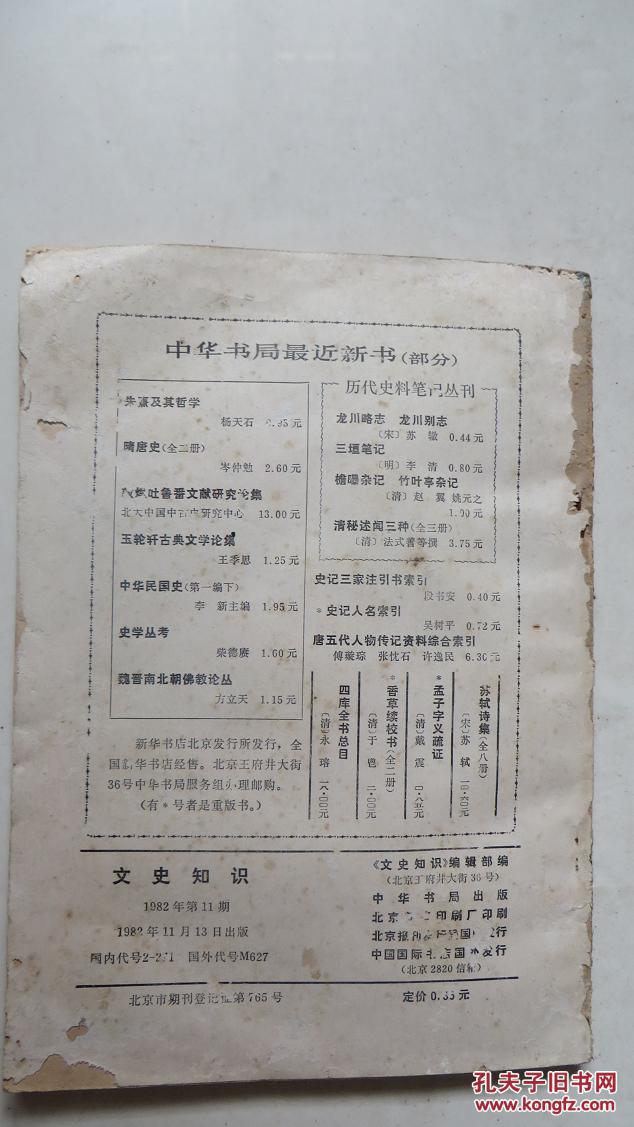 中华书局最近新书(部分)
朱熹及其哲学
杨天石 .95元
隋唐史(全二册)
岑仲勉 2.60元
吐鲁番文献研究论集
北大中国中古史研究中心 13.00元
玉轮轩古典文学论集
王季思 1.25元
中华民国史(第一编下)
李 新主编 1.95元
史学丛考
柴德赓 1.60元
魏晋南北朝佛教论丛
方立天 1.15元
新华书店北京发行所发行，全
国新华书店经售。北京王府井大街
36号中华书局服务组办理邮购。
(有*号者是重版书。)
历代史料笔记丛刊
龙川略志 龙川别志
〔宋〕苏 辙 0.44元
三垣笔记
〔明〕李 清 0.80元
檐曝杂记 竹叶亭杂记
〔清〕赵 翼 姚元之
1.00元
清秘述闻三种(全三册)
〔清〕法式善等撰 3.75元
史记三家注引书索引
段书安 0.40元
*史记人名索引
吴树平 0.72元
唐五代人物传记资料综合索引
傅璇琮 张忱石 许逸民 6.30元
苏轼诗集(全八册)
〔宋〕苏 轼 一八·六〇元
*孟子字义疏证
〔清〕戴 震 〇·八五元
*香草续校书(全二册)
〔清〕于 鬯 二·〇〇元
四库全书总目
〔清〕永 瑢 一八·〇〇元
文史知识
1982年第11期
1982年11月13日出版
国内代号2-2 1 国外代号M627
《文史知识》编辑部编
(北京王府井大街36号)
中华书局出版
北京 印刷厂印刷
北京报刊 国 发行
中国国际书店国外发行
(北京2820信箱)
北京市期刊登记证第765号
定价0.35元
孔夫子旧书网
www.kongfz.com